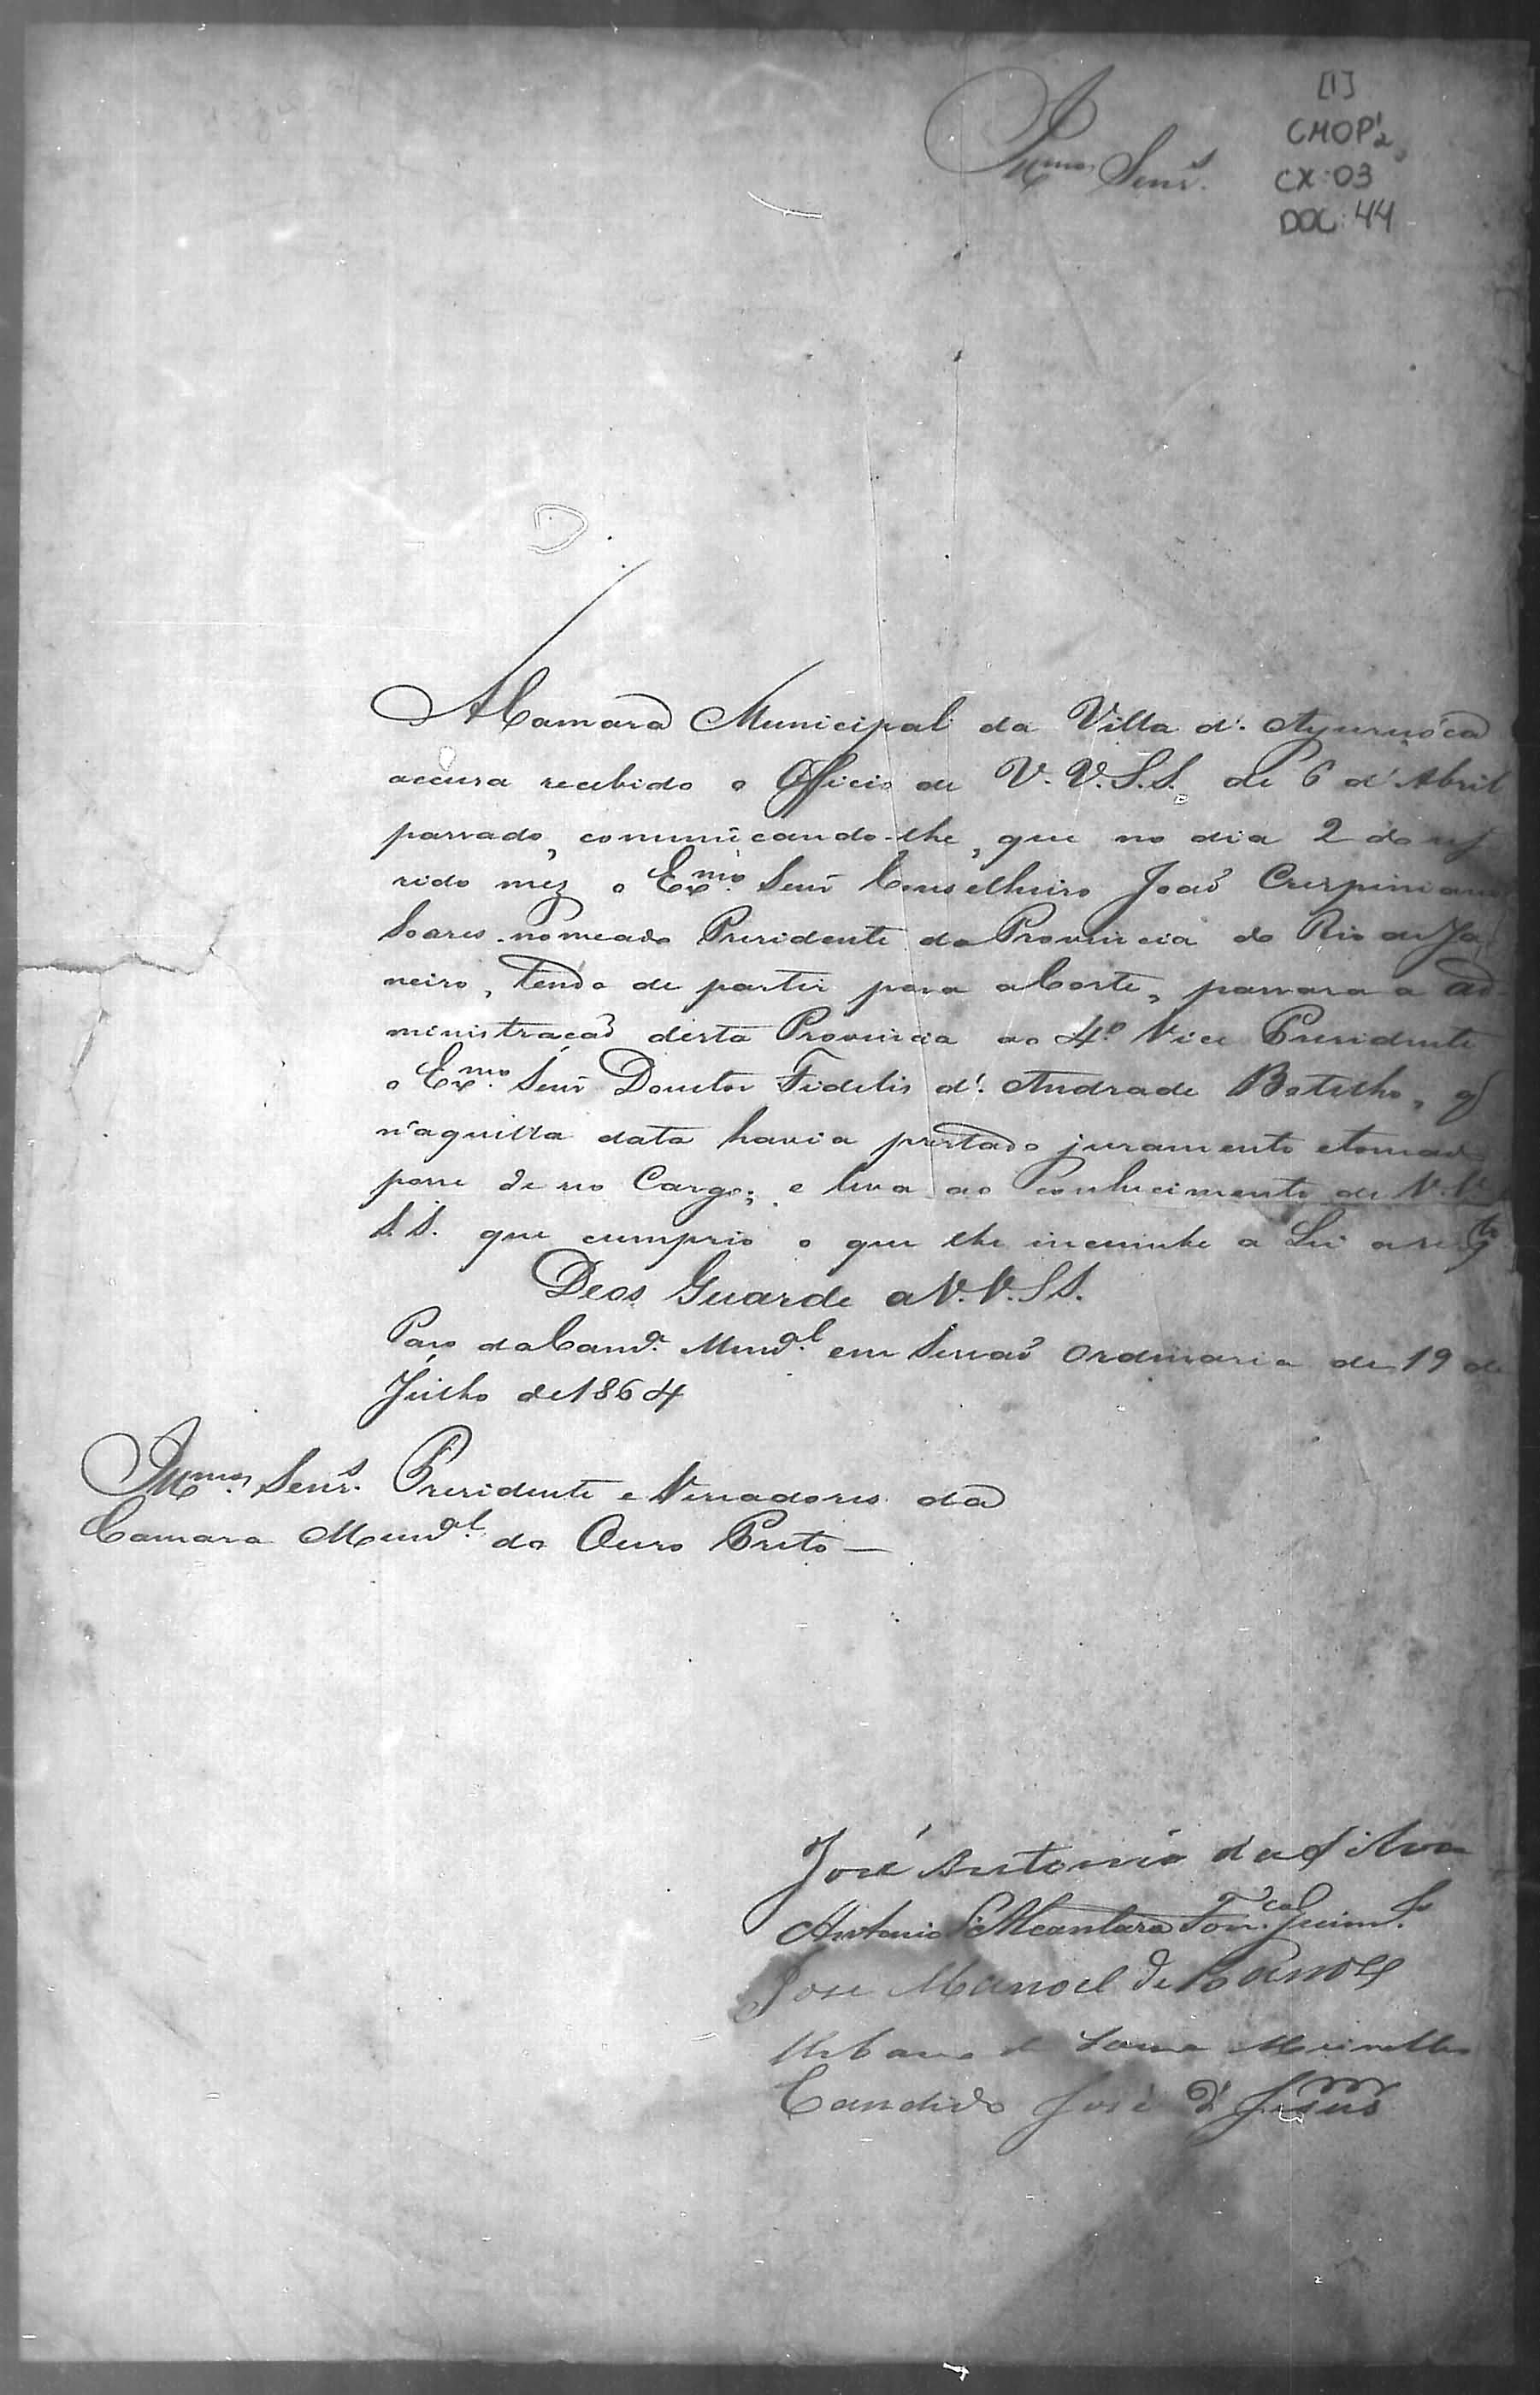 [1]
CMOP 1/2
CX: 03
DOC: 44
Illmos. Senrs.
A Camara Municipal da Villa d'. Ayuruóca
accusa recebido o Officio de V. V. S. S. de 6 d'. Abril
passado, communicando-lhe, que no dia 2 do refe
rido mez o Exmo. Senr Conselheiro João Crispiniano
Soares nomeado Presidente da Provincia do Rio de Ja
neiro, tendo de partir para a Corte, passara a ad
ministração desta Provincia ao 4º Vice Presidente
o Exmo. Senr Doutor Fidelis d'. Andrade Botelho, q
n'aquella data havia prestado juramento e tomado
posse de no Cargo; e leva ao conhecimento de V. V.
S. S. que cumprio o que lhe incumbe a Lei a resp.to
Deos Guarde a V. V. S S.
Paço da Camrª. Munal. em Sessão Ordinaria de 19 de
Julho de 1864
Illmos. Senrs. Presidente e Vereadores da
Camara Munal. do Ouro Preto —
José Antonio da Silva
Antonio d'Alcantara Foncca Guimes
José Manoel de Barros
Urbano de Souza Meirelles
Candido José d' Jesus